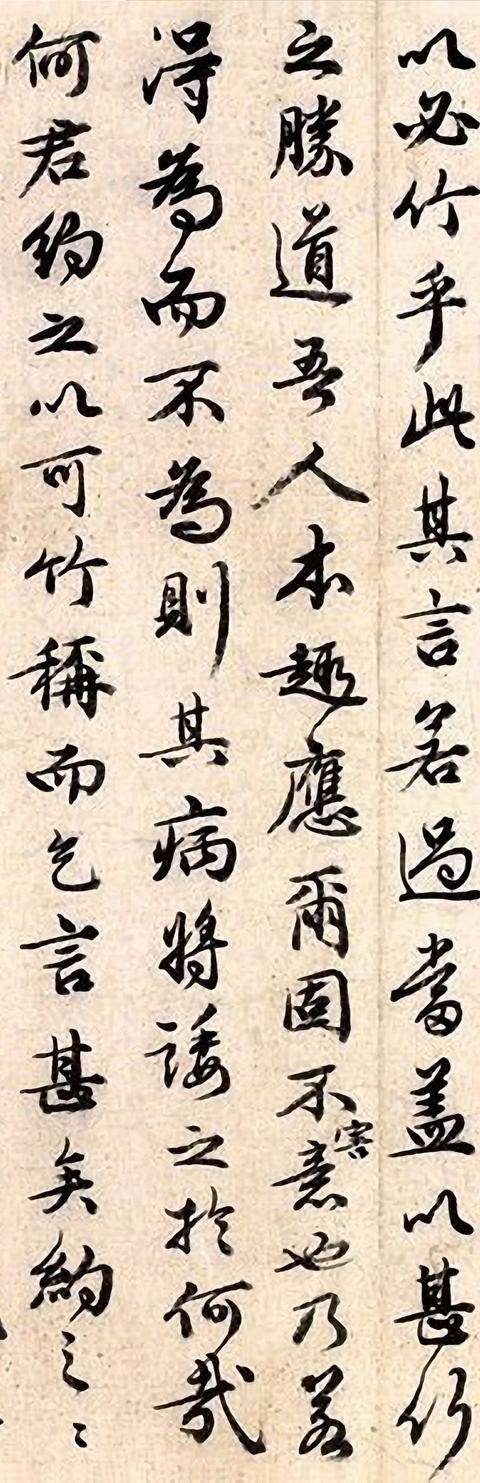 以必竹乎此其言若過當盖以甚竹
之勝道吾人本趣應爾固不害意也乃若
得為而不為則其病將諉之於何哉
何君約之以可竹稱而乞言甚矣約之〻